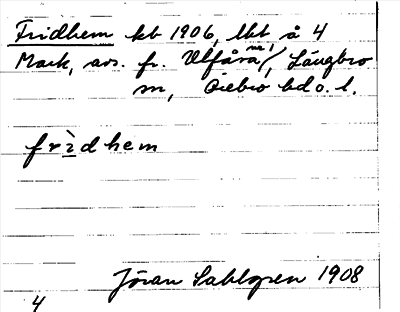 Fridhem kb 1906, lht å 4
Mark, avs. fr. Ulfåra m/, Längbro
sn, Örebro hd o. l.
frìdhem
Jöran Sahlgren 1908
4